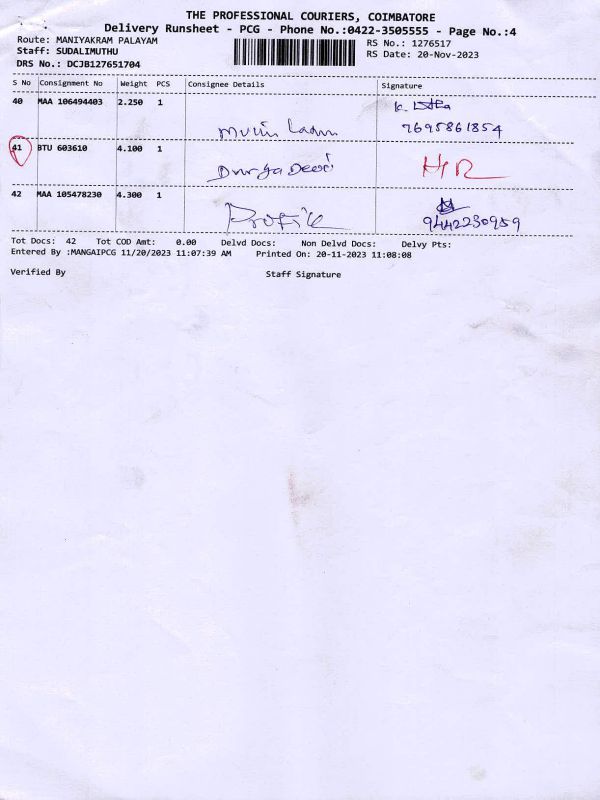 THE PROFESSIONAL COURIERS, COIMBATORE
Delivery Runsheet - PCG - Phone No.:0422-3505555 - Page No.:4
Route: MANIYAKRAM PALAYAM
RS No.: 1276517
Staff: SUDALIMUTHU
RS Date: 20-Nov-2023
DRS No.: DCJB127651704
S No Consignment No Weight PCS Consignee Details Signature
40 MAA 106494403 2.250 1
7695861854
41 BTU 603610 4.100 1 Durga Devi HR
42 MAA 105478230 4.300 1 Profile
9442230959
Tot Docs: 42 Tot COD Amt: 0.00 Delvd Docs: Non Delvd Docs: Delvy Pts:
Entered By :MANGAIPCG 11/20/2023 11:07:39 AM Printed On: 20-11-2023 11:08:08
Verified By Staff Signature